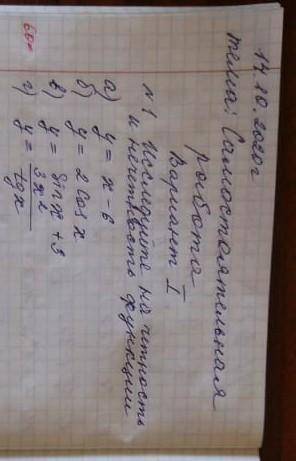 14.10.2020г
тема: Самостоятельная
работа
Вариант I
№1 Исследуйте на чётность
и нечётность функции
а) y = x - 6
б) y = 2 cos x
в) y = sin x + 3
г) y = 3x²/tgx